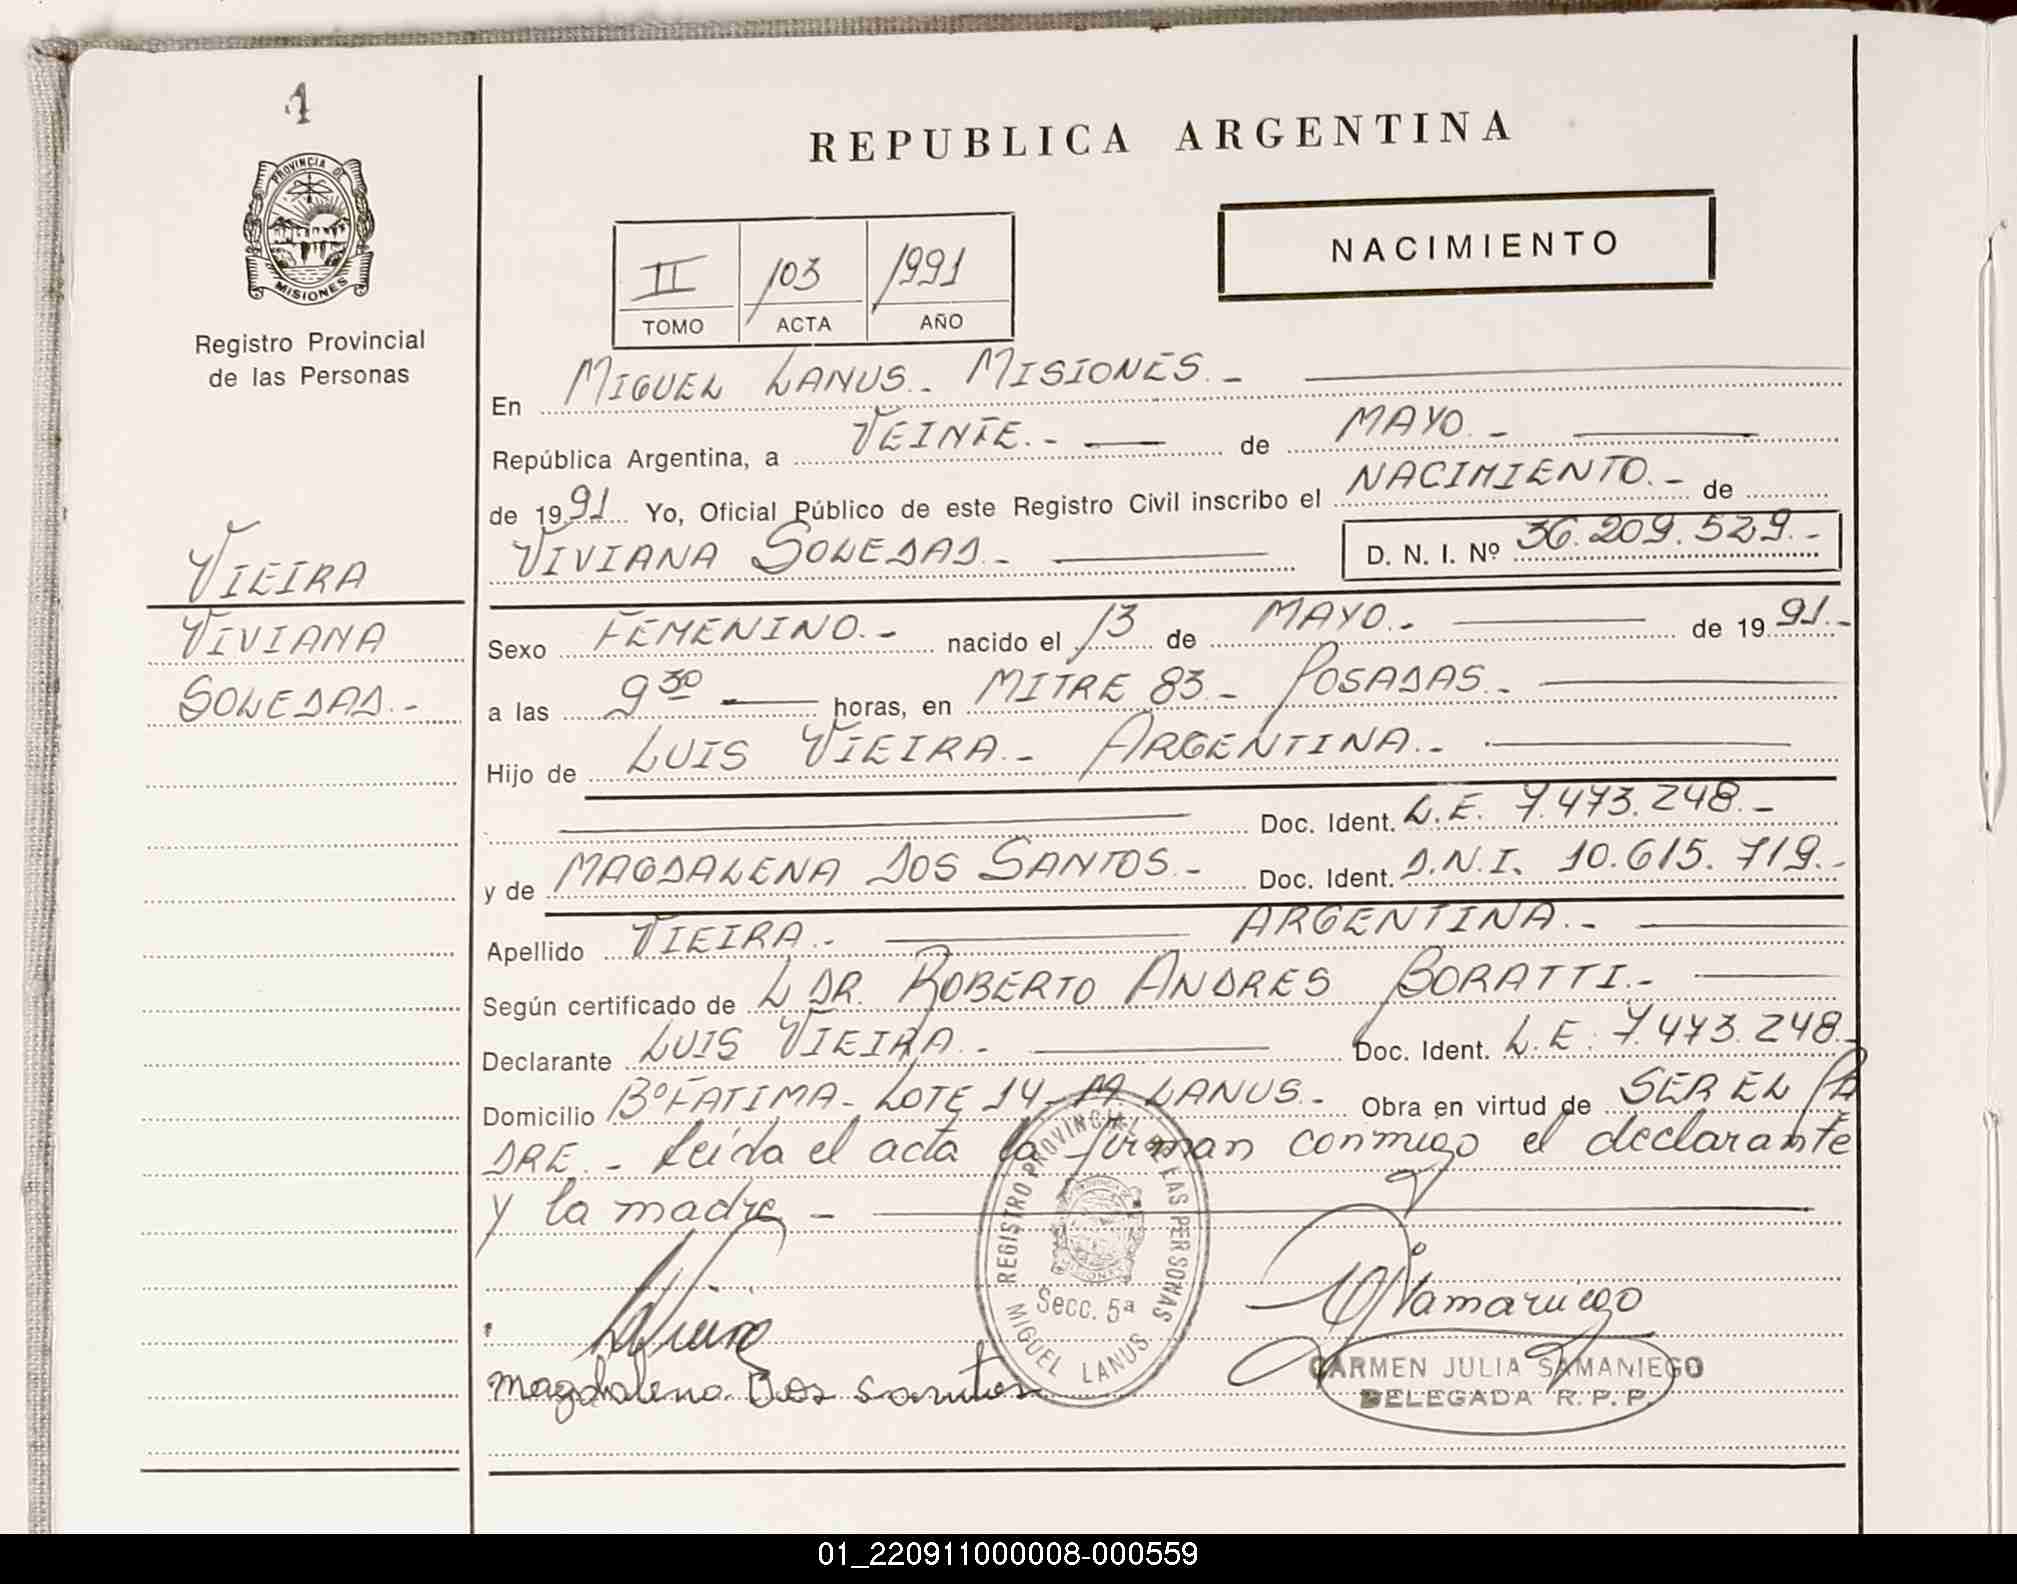 1
PROVINCIA DE
MISIONES
Registro Provincial
de las Personas
VIEIRA
VIVIANA
SOLEDAD.-
REPUBLICA ARGENTINA
NACIMIENTO
II 103 1991
TOMO ACTA AÑO
En MIGUEL LANUS.- MISIONES.-
República Argentina, a VEINTE.- de MAYO.-
de 1991 Yo, Oficial Público de este Registro Civil inscribo el NACIMIENTO.- de
VIVIANA SOLEDAD.- D. N. I. Nº 36.209.529.-
Sexo FEMENINO.- nacido el 13 de MAYO.- de 1991.-
a las 9 30 horas, en MITRE 83.- POSADAS.-
Hijo de LUIS VIEIRA.- ARGENTINA.-
Doc. Ident. L.E. 7.473.248.-
y de MAGDALENA DOS SANTOS.- Doc. Ident. D.N.I. 10.615.719.-
Apellido VIEIRA.- ARGENTINA.-
Según certificado de L DR. ROBERTO ANDRES BORATTI.-
Declarante LUIS VIEIRA.- Doc. Ident. L.E. 7.473.248.-
Domicilio Bº FATIMA- LOTE 14- M LANUS.- Obra en virtud de SER EL PA
DRE.- Leída el acta la firman conmigo el declarante
y la madre -
REGISTRO PROVINCIAL DE LAS PERSONAS
Secc. 5ª
MIGUEL LANUS
LVieira
Magdalena Dos Santos
CARMEN JULIA SAMANIEGO
DELEGADA R. P. P.
01_220911000008-000559